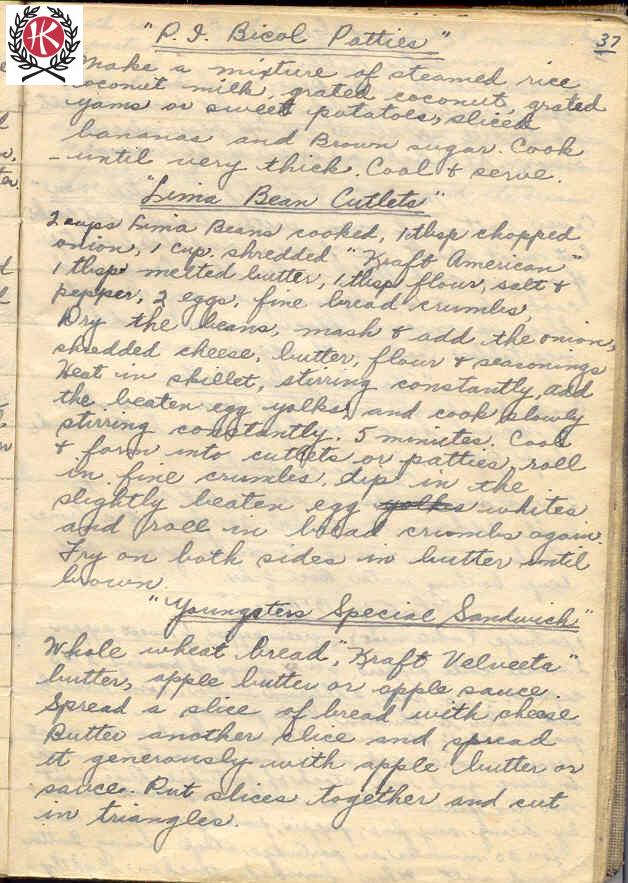 HK
37
"P. I. Bicol Patties"
Make a mixture of steamed rice
coconut milk, grated coconut, grated
yams or sweet potatoes, sliced
bananas and Brown sugar. Cook
- until very thick. Cool & serve.
"Lima Bean Cutlets"
2 cups Lima Beans cooked, 1 tbsp chopped
onion, 1 cup shredded "Kraft American"
1 tbsp melted butter, 1 tbsp flour, salt &
pepper, 2 eggs, fine bread crumbs,
Dry the beans, mash & add the onion,
shredded cheese, butter, flour & seasonings
Heat in skillet, stirring constantly, add
the beaten egg yolks, and cook slowly
stirring constantly. 5 minutes. Cool
& form into cutlets or patties, roll
in fine crumbs, dip in the
slightly beaten egg yolks whites
and roll in bread crumbs again.
Fry on both sides in butter until
brown.
"Youngsters Special Sandwich"
Whole wheat bread, "Kraft Velveeta"
butter, apple butter or apple sauce.
Spread a slice of bread with cheese
Butter another slice and spread
it generously with apple butter or
sauce. Put slices together and cut
in triangles.